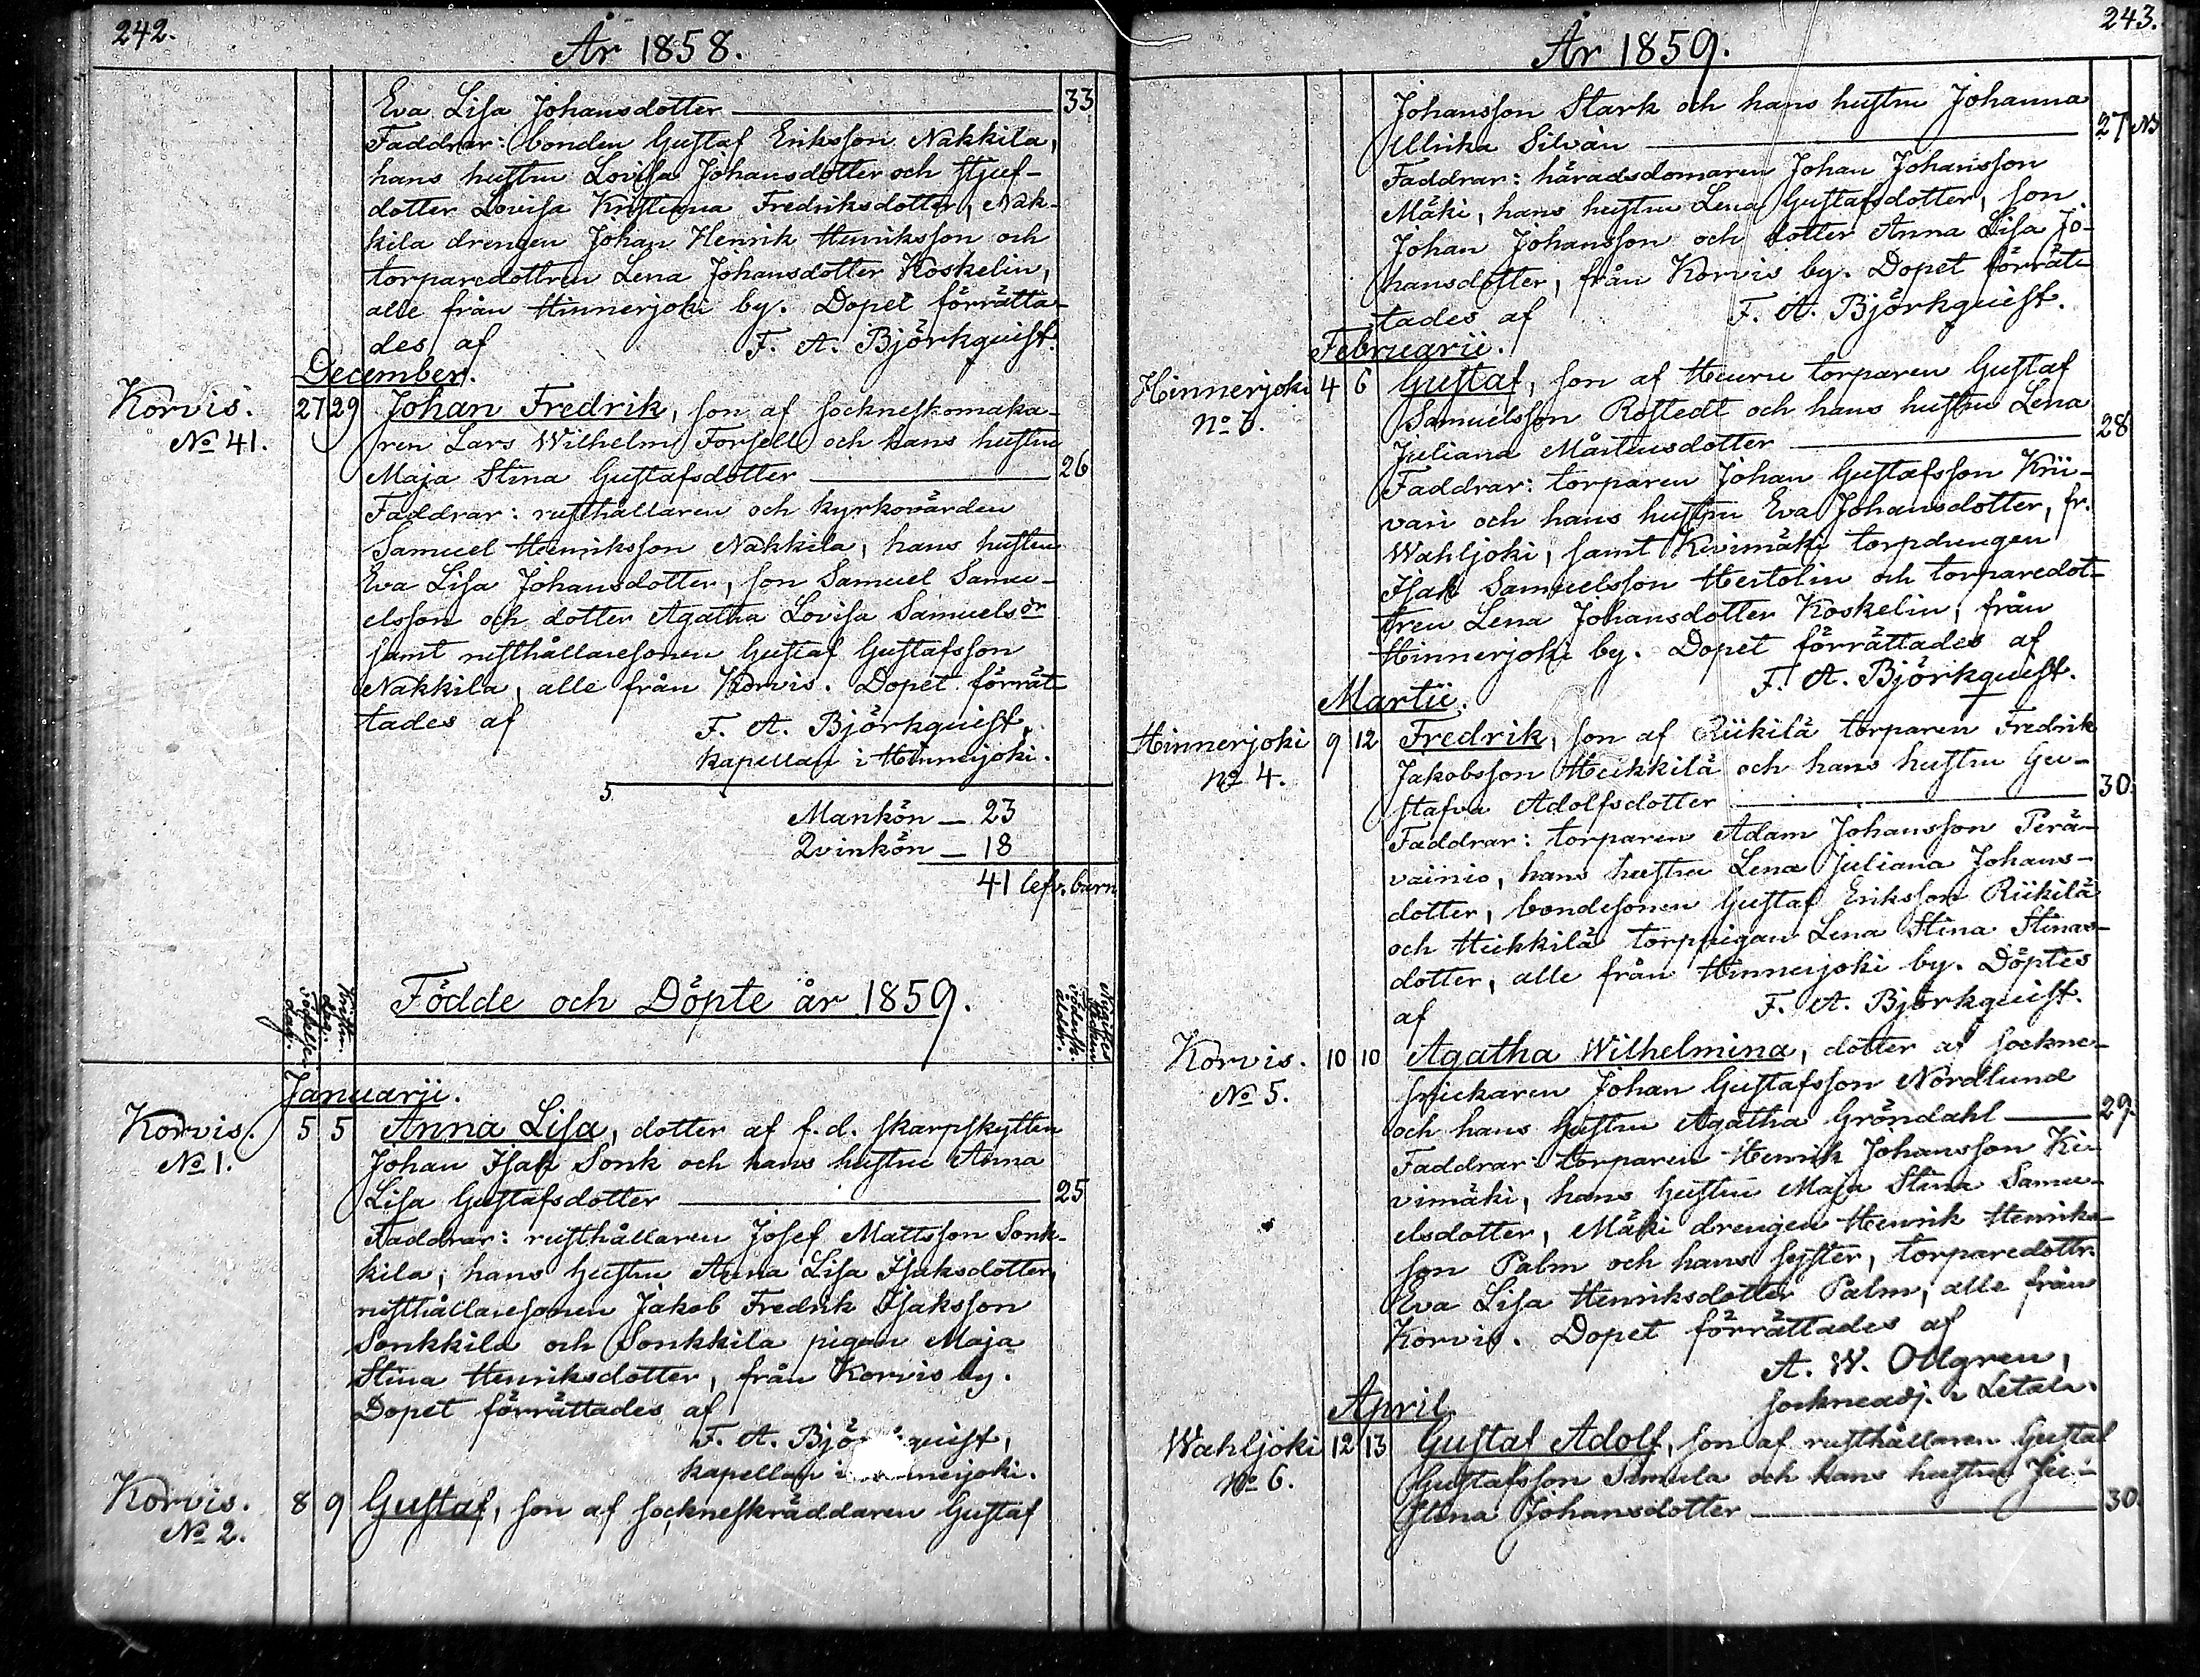 242.
År 1858.
Eva Lisa Johansdotter — 33
Faddrar: bonden Gustaf Eriksson Nakkila,
hans hustru Lovisa Johansdotter och stjuf-
dotter Lovisa Kristiina Fredriksdotter, Nak-
kila drengen Johan Henrik Henriksson och
torparedottren Lena Johansdotter Koskelin,
alle från Hinnerjoki by. Dopet förrätta-
des af F. A. Björkquist.
December.
Korvis. 27 29 Johan Fredrik, son af sockneskomaka-
No 41. ren Lars Wilhelm Forsell och hans hustru
Maja Stina Gustafsdotter — 26
Faddrar: rusthållaren och kyrkovärden
Samuel Henriksson Nakkila, hans hustru
Eva Lisa Johansdotter, son Samuel Samu-
elsson och dotter Agatha Lovisa Samuelsdr
samt rusthållaresonen Gustaf Gustafsson
Nakkila, alle från Korvis. Dopet förrät-
tades af F. A. Björkquist,
kapellan i Hinnerjoki.
5
Mankön — 23
Qvinkön — 18
41 lefv. barn
Födde och Döpte år 1859.
Januarii.
Korvis. 5 5 Anna Lisa, dotter af f.d. skarpskytten
No 1. Johan Isak Sonk och hans hustru Anna
Lisa Gustafsdotter — 25
Faddrar: rusthållaren Josef Mattsson Sonk-
kila, hans hustru Anna Lisa Isaksdotter,
rusthållaresonen Jakob Fredrik Isaksson
Sonkkila och Sonkkila pigan Maja
Stina Henriksdotter, från Korvis by.
Dopet förrättades af
F. A. Björkquist,
kapellan i Hinnerjoki.
Korvis. 8 9 Gustaf, son af sockneskräddaren Gustaf
No 2.
243.
År 1859.
Johansson Stark och hans hustru Johanna
Ullrika Silván — 27
Faddrar: häradsdomaren Johan Johansson
Mäki, hans hustru Lena Gustafsdotter, son
Johan Johansson och dotter Anna Lisa Jo-
hansdotter, från Korvis by. Dopet förrät-
tades af F. A. Björkquist.
Februarii.
Hinnerjoki 4 6 Gustaf, son af Heuru torparen Gustaf
No 3. Samuelsson Rostedt och hans hustru Lena
Juliana Mårtensdotter — 28
Faddrar: torparen Johan Gustafsson Krii-
vari och hans hustru Eva Johansdotter, fr.
Wahljoki, samt Kivimäki torpdrengen
Isak Samuelsson Hertolin och torparedot-
tren Lena Johansdotter Koskelin, från
Hinnerjoki by. Dopet förrättades af
F. A. Björkquist.
Martii.
Hinnerjoki 9 12 Fredrik, son af Riikilä torparen Fredrik
No 4. Jakobsson Heikkilä och hans hustru Gu-
stafva Adolfsdotter — 30.
Faddrar: torparen Adam Johansson Perä-
vainio, hans hustru Lena Juliana Johans-
dotter, bondesonen Gustaf Eriksson Riikilä
och Heikkilä torppigan Lena Stina Stinas-
dotter, alle från Hinnerjoki by. Döptes
af F. A. Björkquist.
Korvis. 10 10 Agatha Wilhelmina, dotter af sockne-
No 5. snickaren Johan Gustafsson Nordlund
och hans hustru Agatha Gröndahl — 29.
Faddrar: torparen Henrik Johansson Ki-
vimäki, hans hustru Maja Stina Samu-
elsdotter, Mäki drengen Henrik Henriks-
son Palm och hans syster, torparedottr.
Eva Lisa Henriksdotter Palm, alle från
Korvis. Dopet förrättades af
A. W. Ollgren,
sockneadj. i Letala.
April.
Wahljoki 12 13 Gustaf Adolf, son af rusthållaren Gustaf
No 6. Gustafsson Simula och hans hustru Ju-
stina Johansdotter — 30.